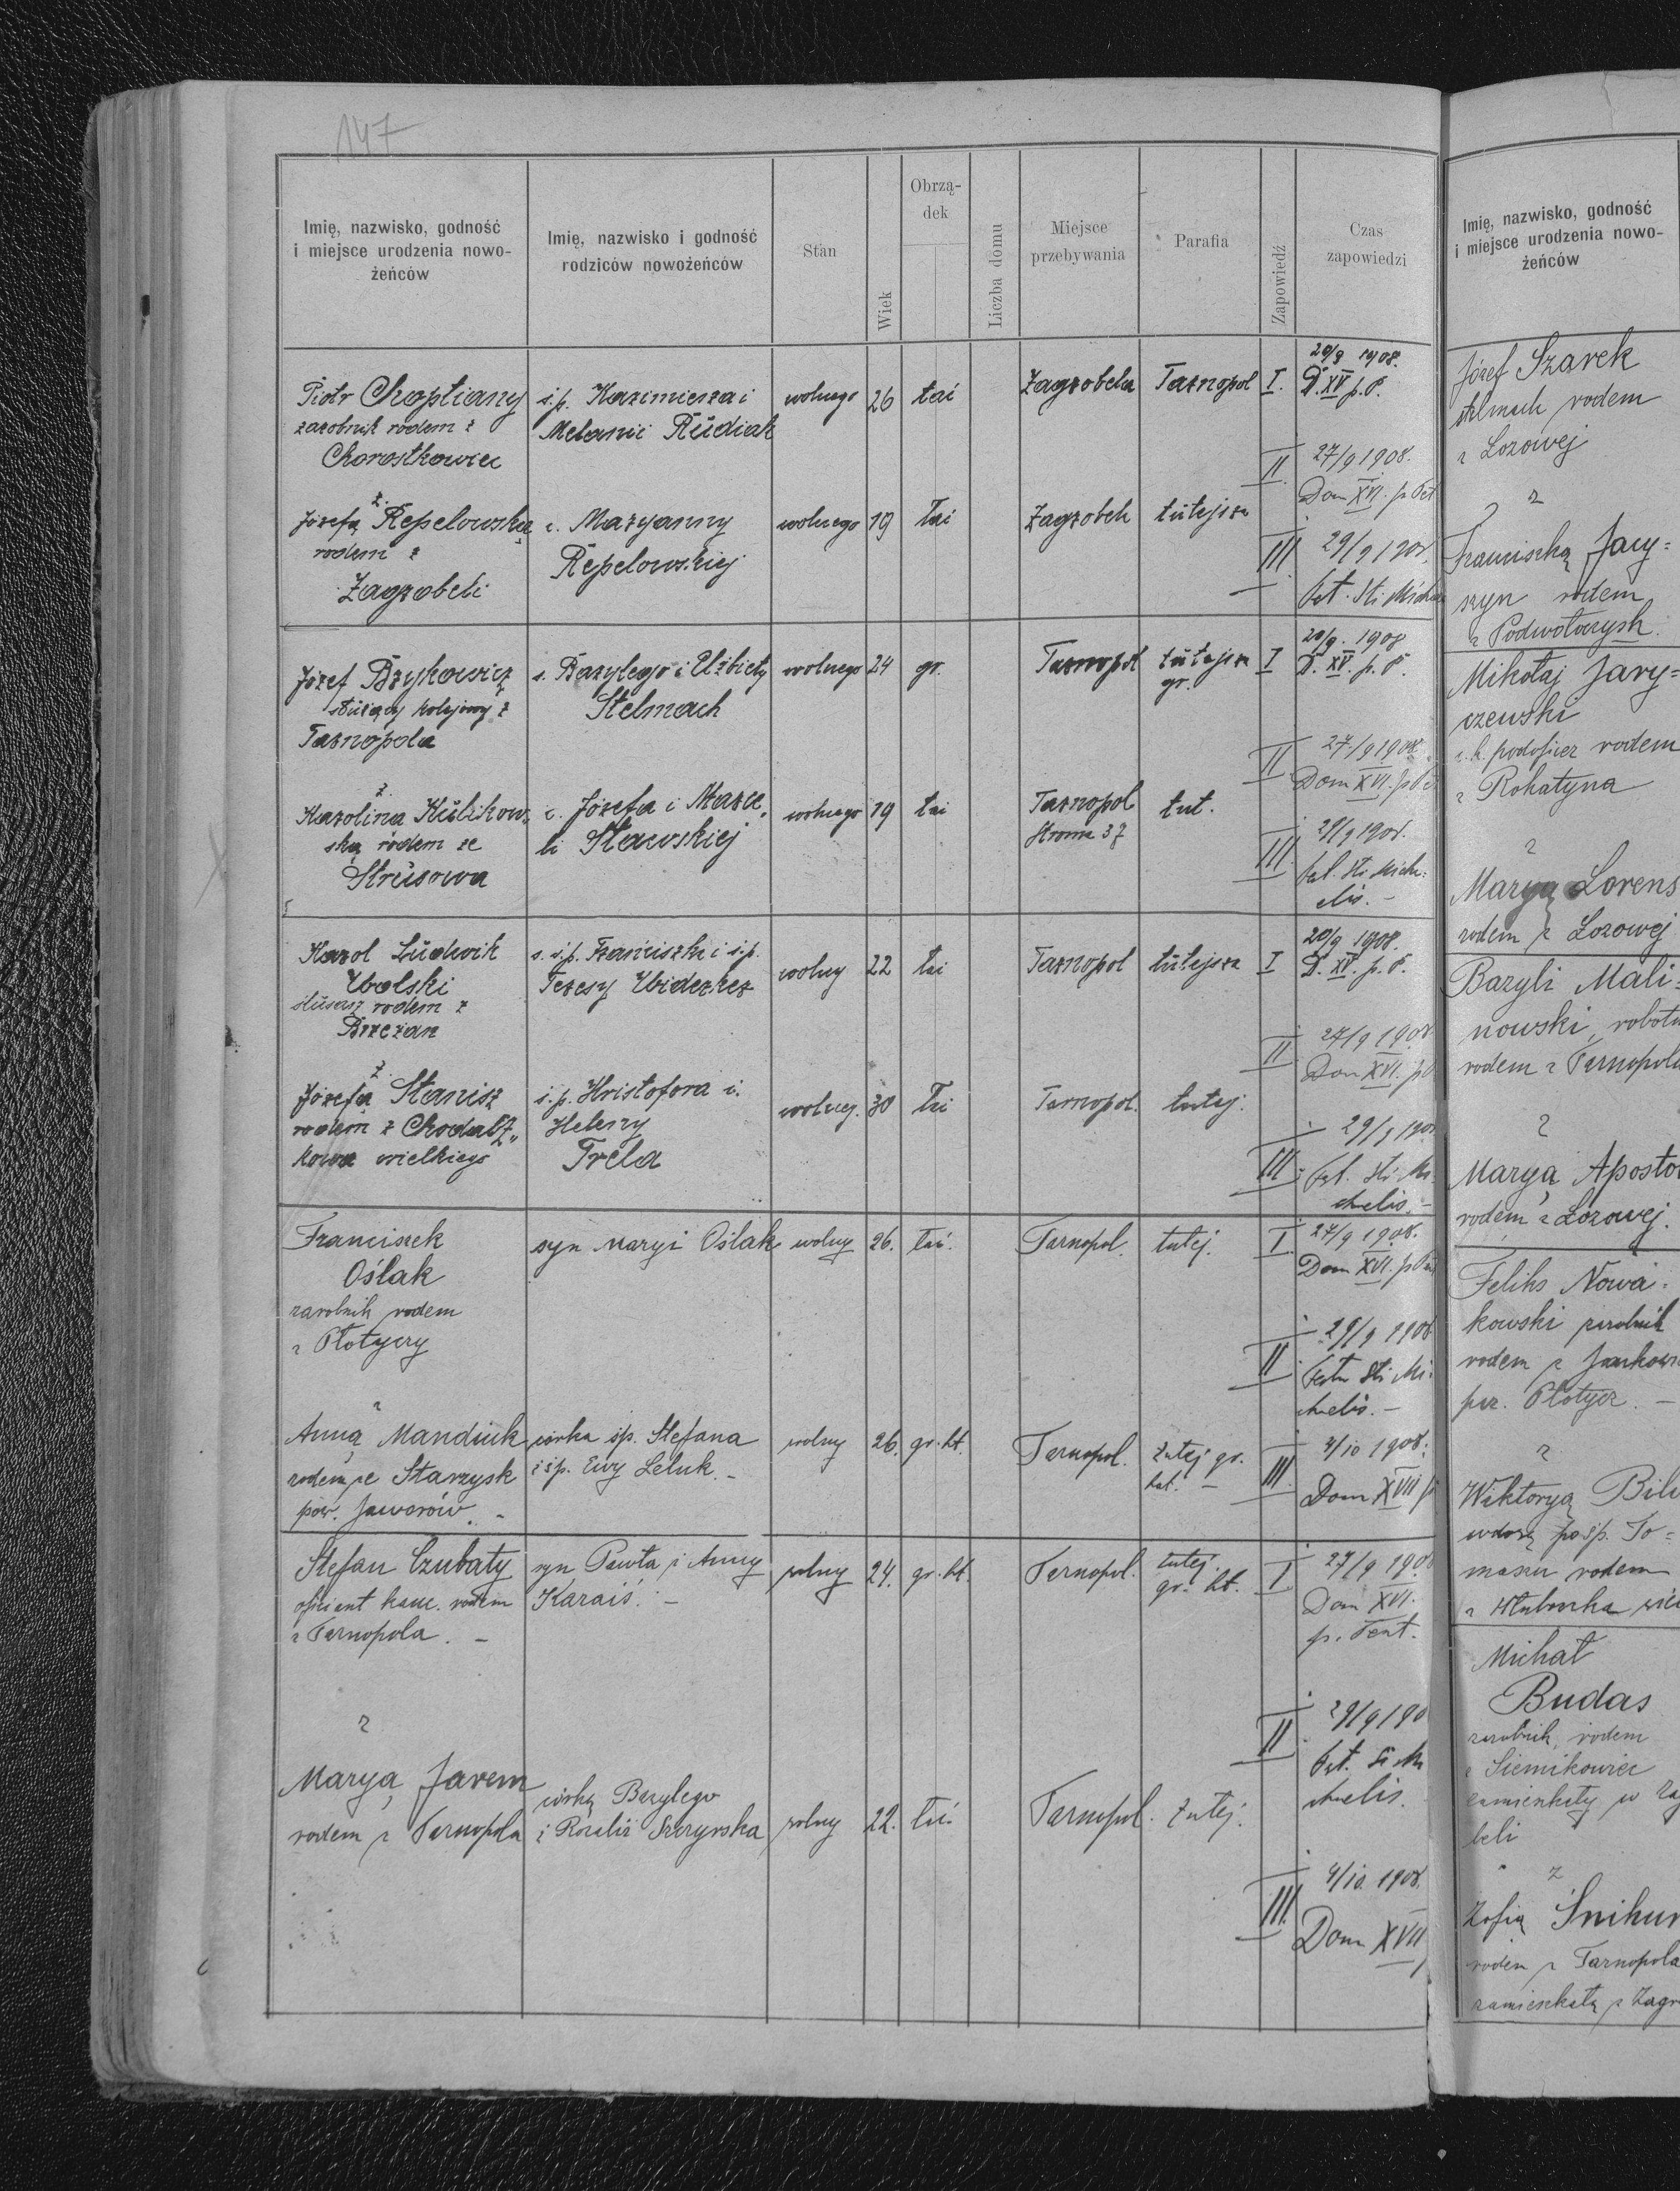 147
Imię, nazwisko, godność
i miejsce urodzenia nowo-
żeńców
Imię, nazwisko i godność
rodziców nowożeńców
Stan
Wiek
Obrzą-
dek
Liczba domu
Miejsce
przebywania
Parafia
Zapowiedź
Czas
zapowiedzi
Piotr Choptiany
zarobnik rodem z
Chorostkowiec
ś.p. Kazimierza i
Melanii Rudiak
wolnego
26
łać
Zagrobela
Tarnopol
I.
20/9 1908.
D. XV p. P.
II
27/9 1908.
Dom XVI. p Pet
z
Józefą Repelowską
rodem z
Zagrobeli
c. Maryanny
Repelowskiej
wolnego
19
łać
Zagrobela
tutejsza
III
29/9 1908.
Fst. Sti Micha
Józef Brykowicz
służący kolejowy z
Tarnopola
s. Bazylego i Elżbiety
Stelmach
wolnego
24
gr.
Tarnopol
tutejsza
gr.
I
20/9. 1908
D. XV. p. P.
II
27./9 1908.
Dom XVI. p Pe
z
Karolina Kulikow.
ską rodem ze
Strusowa
c. Józefa i Maru.
li Stawskiej
wolnego
19
łać
Tarnopol
Stroma 37
tut.
III.
29/9 1908.
Fst. Sti Micha-
elis. -
Karol Ludwik
Wolski
ślusarz rodem z
Brzeżan
s. ś.p. Franciszki i ś.p.
Teresy
wolny
22
łać
Tarnopol
tutejsza
I
20/9 1908.
D. XV. p. P.
II
27/9 1908.
Dom XVI. p P
z
Józefą Stanisz
rodem z Chodacz„
kowa wielkiego
ś.p. Kristofora i.
Heleny
Trela
wolneg.
30
łać
Tarnopol.
tutej.
III.
29/9 1908
Fst. Sti Mi-
chaelis. -
Franciszek
Oślak
zarobnik rodem
z Płotyczy
syn Maryi Oślak
wolny
26.
łać.
Tarnopol.
tutej.
I
27/9 1908.
Dom XVI. p Pet
II
29/9 1908
Festu Sti Mi-
chaelis. -
z
Anną Mandiuk
rodem ze Starzysk
pow. Jaworów. -
córka śp. Stefana
i śp. Ewy Leluk. -
wolny
26.
gr. kt.
Tarnopol.
tutej gr.
kat. -
III.
4/10 1908.
Dom XVII p
Stefan Czubaty
oficiant kanc. rodem
z Tarnopola. -
syn Pawła i Anny
Karaiś. -
wolny
24.
gr. kt.
Tarnopol.
tutej.
gr. kt.
I
27/9 1908
Dom XVI.
p. Pent.
II
29/9 190
Fst. S Mi
chaelis.
z
Maryą Jarem
rodem z Tarnopola
córką Bazylego
i Rozalii Szczyrska
wolny
22.
łać.
Tarnopol.
tutej.
III.
4/10 1908.
Dom XVII
Imię, nazwisko, godność
i miejsce urodzenia nowo-
żeńców
Józef Szarek
stelmach rodem
z Łozowej
z
Franciszką Jary=
szyn rodem
z Podwołoczysk.
Mikołaj Jary=
czewski
c. k. podoficer rodem
z Rohatyna
z
Maryą Lorens
rodem z Łozowej
Bazyli Mali=
nowski, robotn
rodem z Tarnopola
z
Maryą Aposto
rodem z Łozowej.
Feliks Nowa-
kowski zarobnik
rodem z Jankow
prz. Płotycz. -
z
Wiktoryą Bili
wdową po śp. To=
maszu rodem
z Hłuboczka wie
Michał
Budas
zarobnik, rodem
z Siemikowiec
zamieszkały w Zag
beli
z
Zofią Śnihur
rodem z Tarnopola
zamieszkałą z Zagr